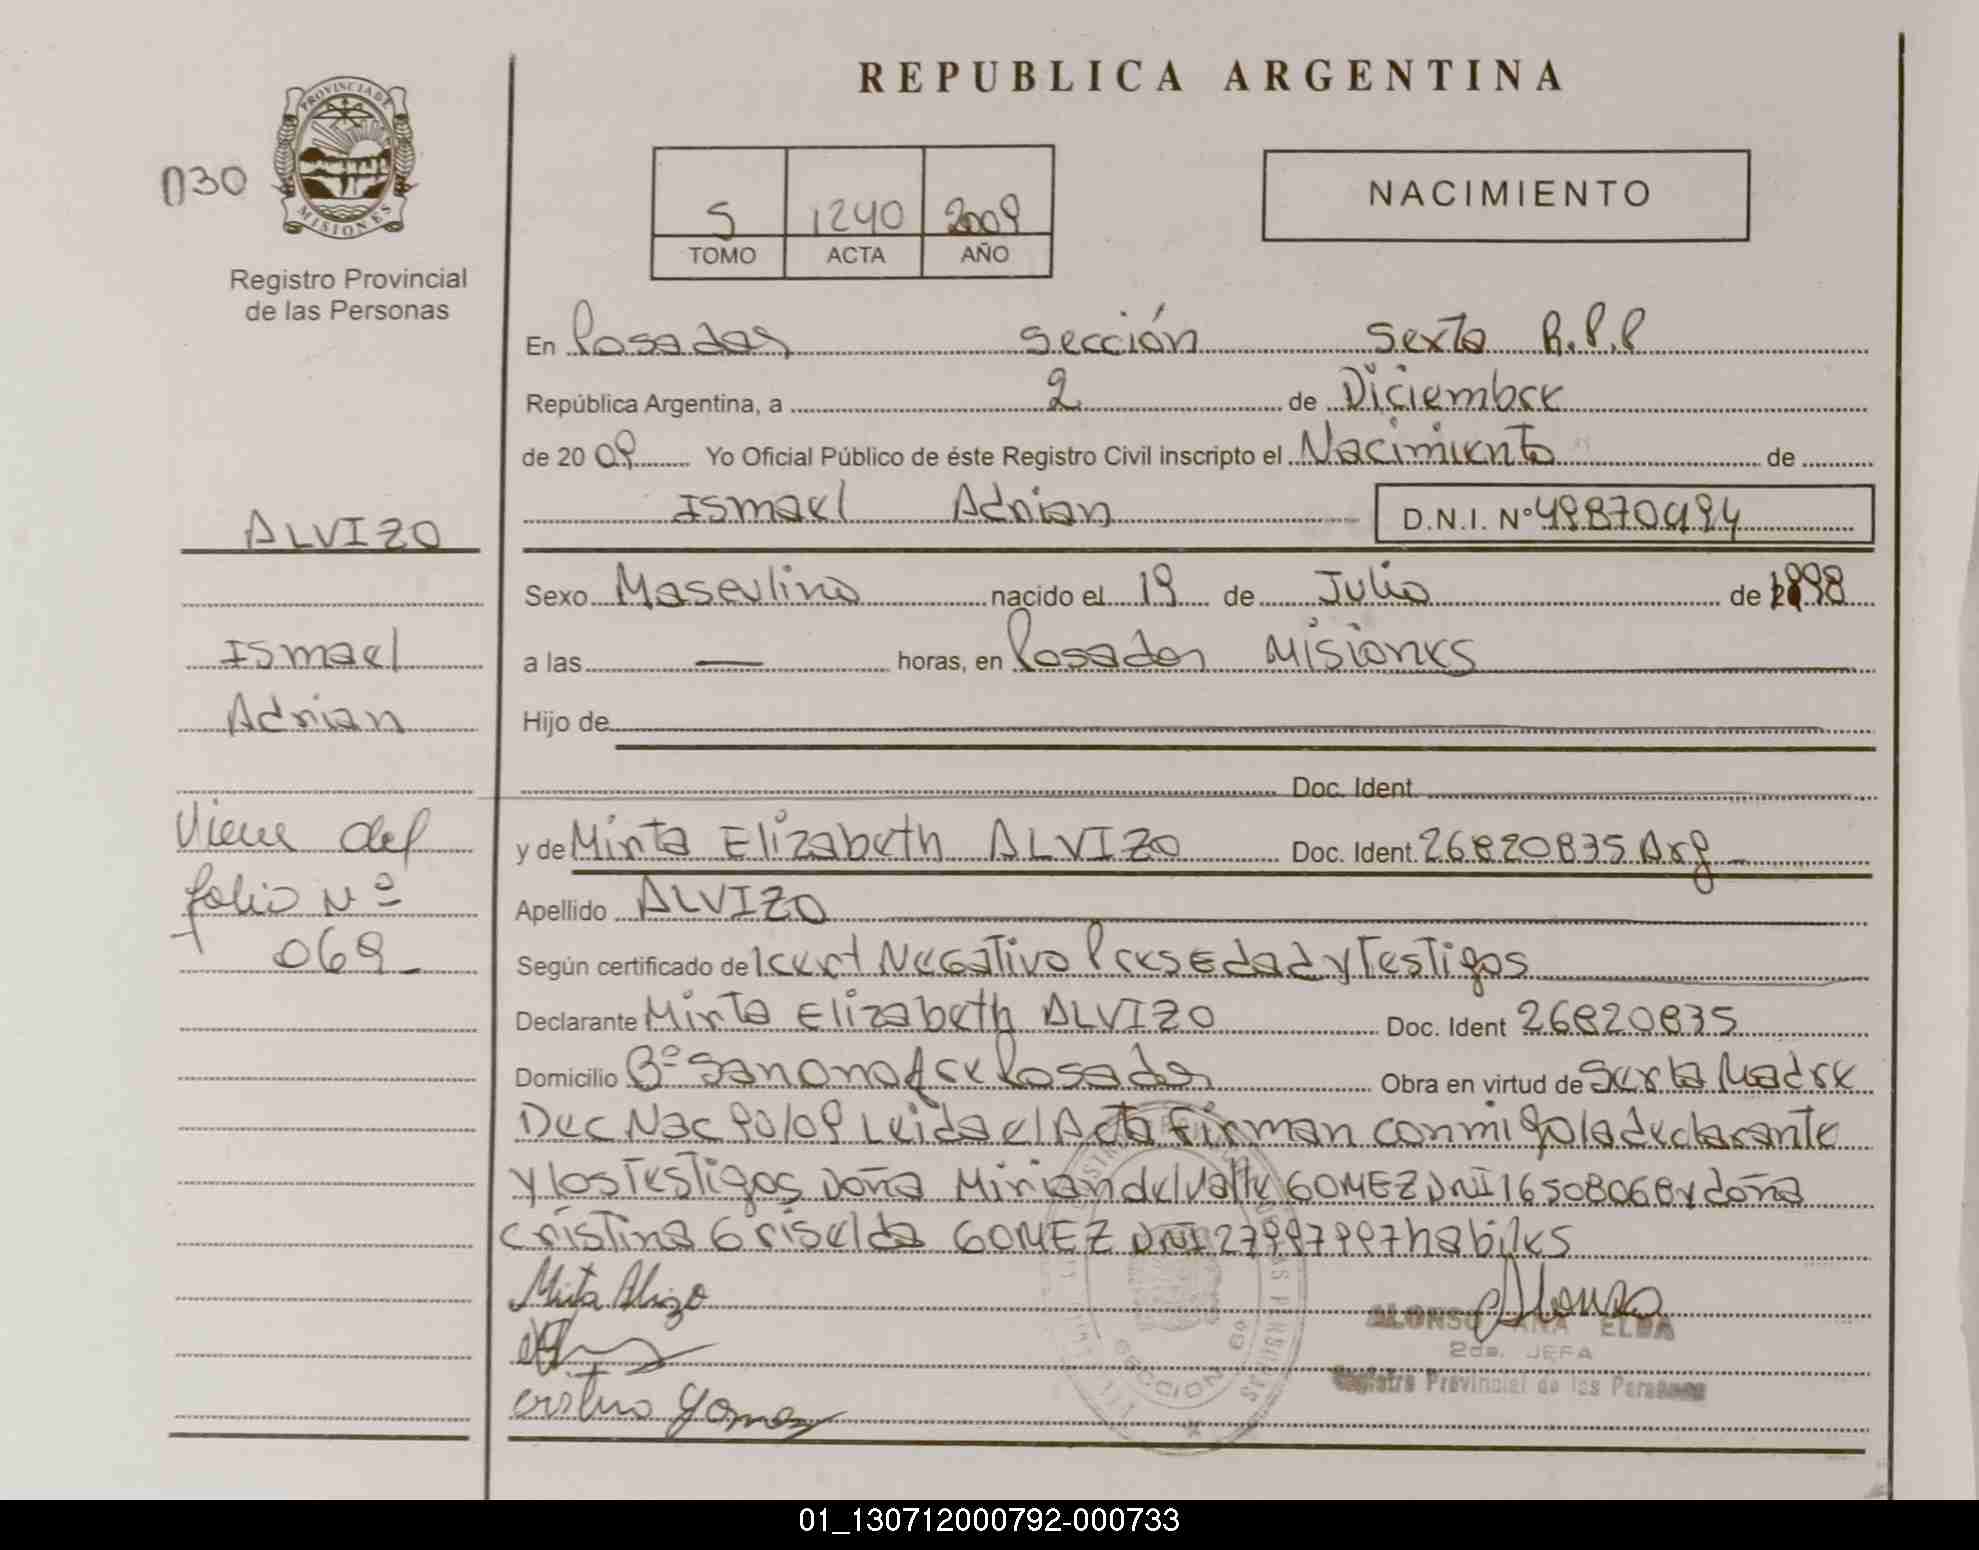 REPUBLICA ARGENTINA
PROVINCIA DE MISIONES
030
Registro Provincial
de las Personas
5 1240 2009
TOMO ACTA AÑO
NACIMIENTO
En Posadas Sección Sexta R.P.P
República Argentina, a 2 de Diciembre
de 20 09 Yo Oficial Público de éste Registro Civil inscripto el Nacimiento de
Ismael Adrian D.N.I. N° 49870494
ALVIZO
Sexo Masculino nacido el 19 de Julio de 1998
Ismael
a las — horas, en Posadas Misiones
Adrian
Hijo de
Doc. Ident.
Viene del
folio Nº
069
y de Mirta Elizabeth ALVIZO Doc. Ident. 26820835 Arg
Apellido ALVIZO
Según certificado de 1cert Negativo Pres Edad y Testigos
Declarante Mirta Elizabeth ALVIZO Doc. Ident 26820835
Domicilio Bº San Onofre Posadas Obra en virtud de Ser la Madre
Dec Nac 90/09 Leida el Acta Firman conmigo la declarante
y los Testigos Doña Mirian del Valle GOMEZ DNI 16508068 y doña
Cristina Griselda GOMEZ DNI 27997997 habiles
Mirta Alvizo
Alonso
ALONSO ANA ELDA
2da. JEFA
Registro Provincial de las Personas
SECCION 6a
cristina Gomez
01_130712000792-000733